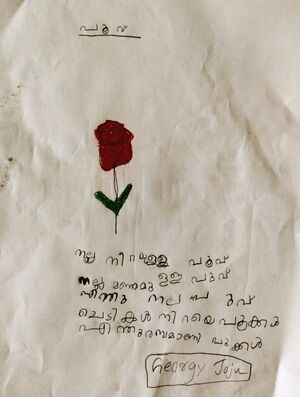 പൂവ്
നല്ല നിറമുള്ള പൂവ്
നല്ല മണമു ള്ള പൂവ്
നല്ല പൂവ്
ചെടികൾ നിറയെ പൂക്കൾ
എന്തുരസമാണീ പൂക്കൾ
Georgy Jaju